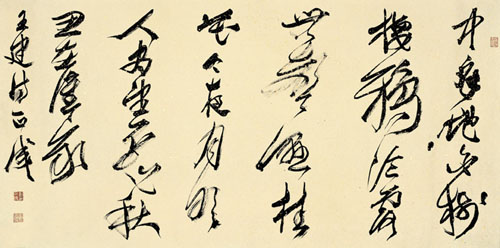 中庭地白樹
棲鴉冷露
無聲濕桂
花今夜月明
人盡望不知秋
思在誰家
王建詩正成